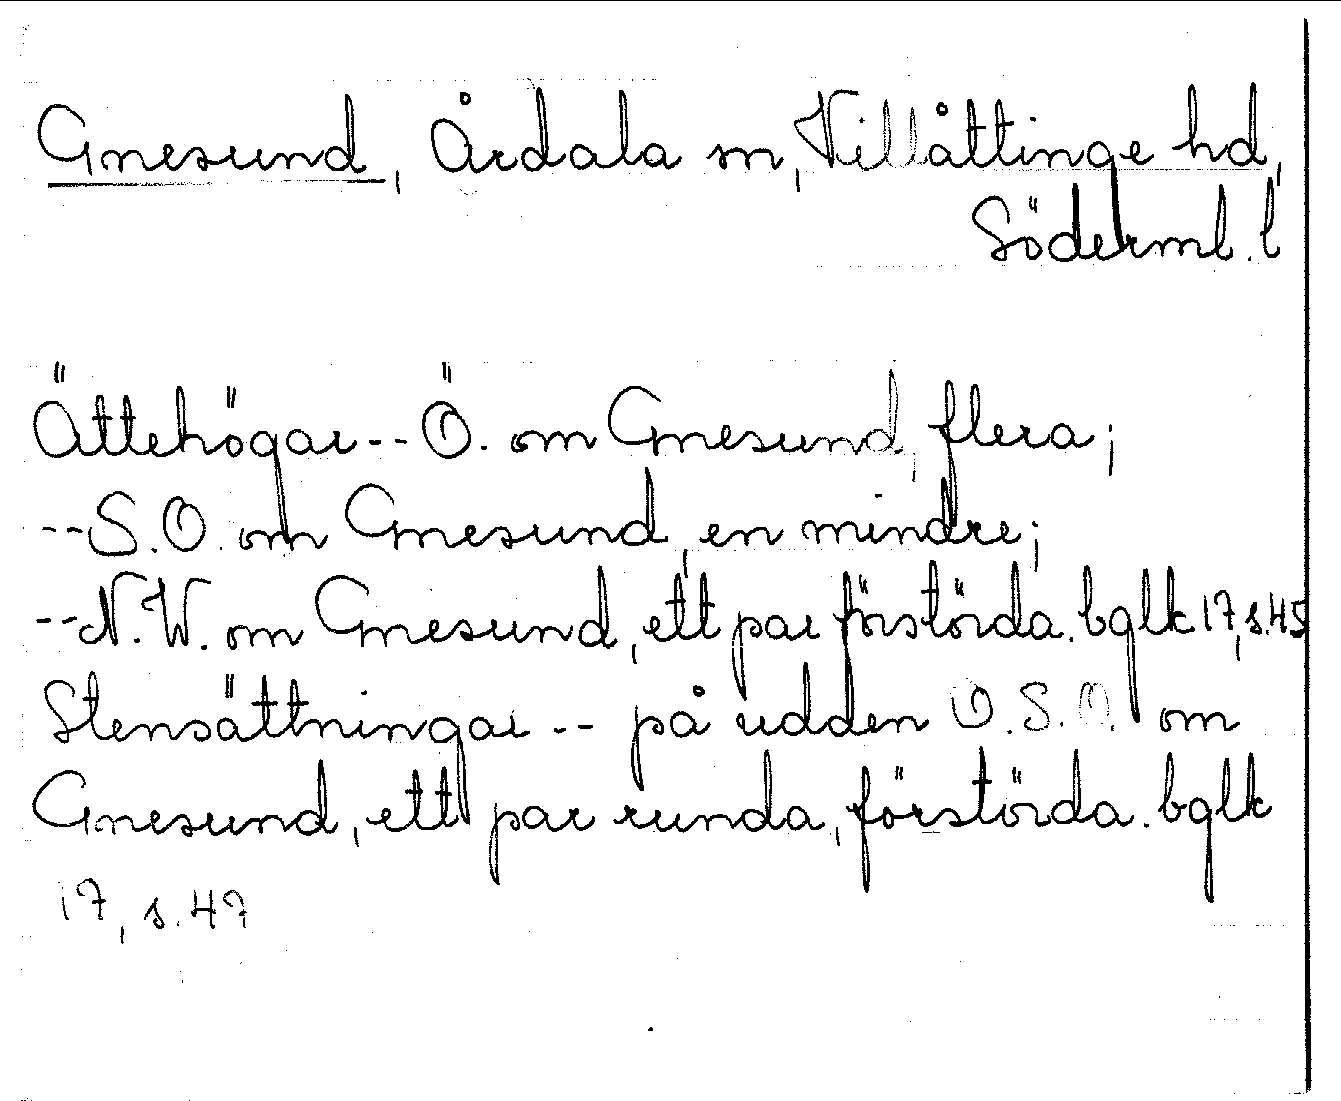 Gnesund, Årdala sn, Villåttinge hd,
Söderml. l
Ättehögar -- Ö. om Gnesund, flera;
-- S.O. om Gnesund, en mindre;
-- N.W. om Gnesund, ett par förstörda. bglk 17, s. 45
Stensättningar -- på udden O.S.O. om
Gnesund, ett par runda, förstörda. bglk
17, s. 47